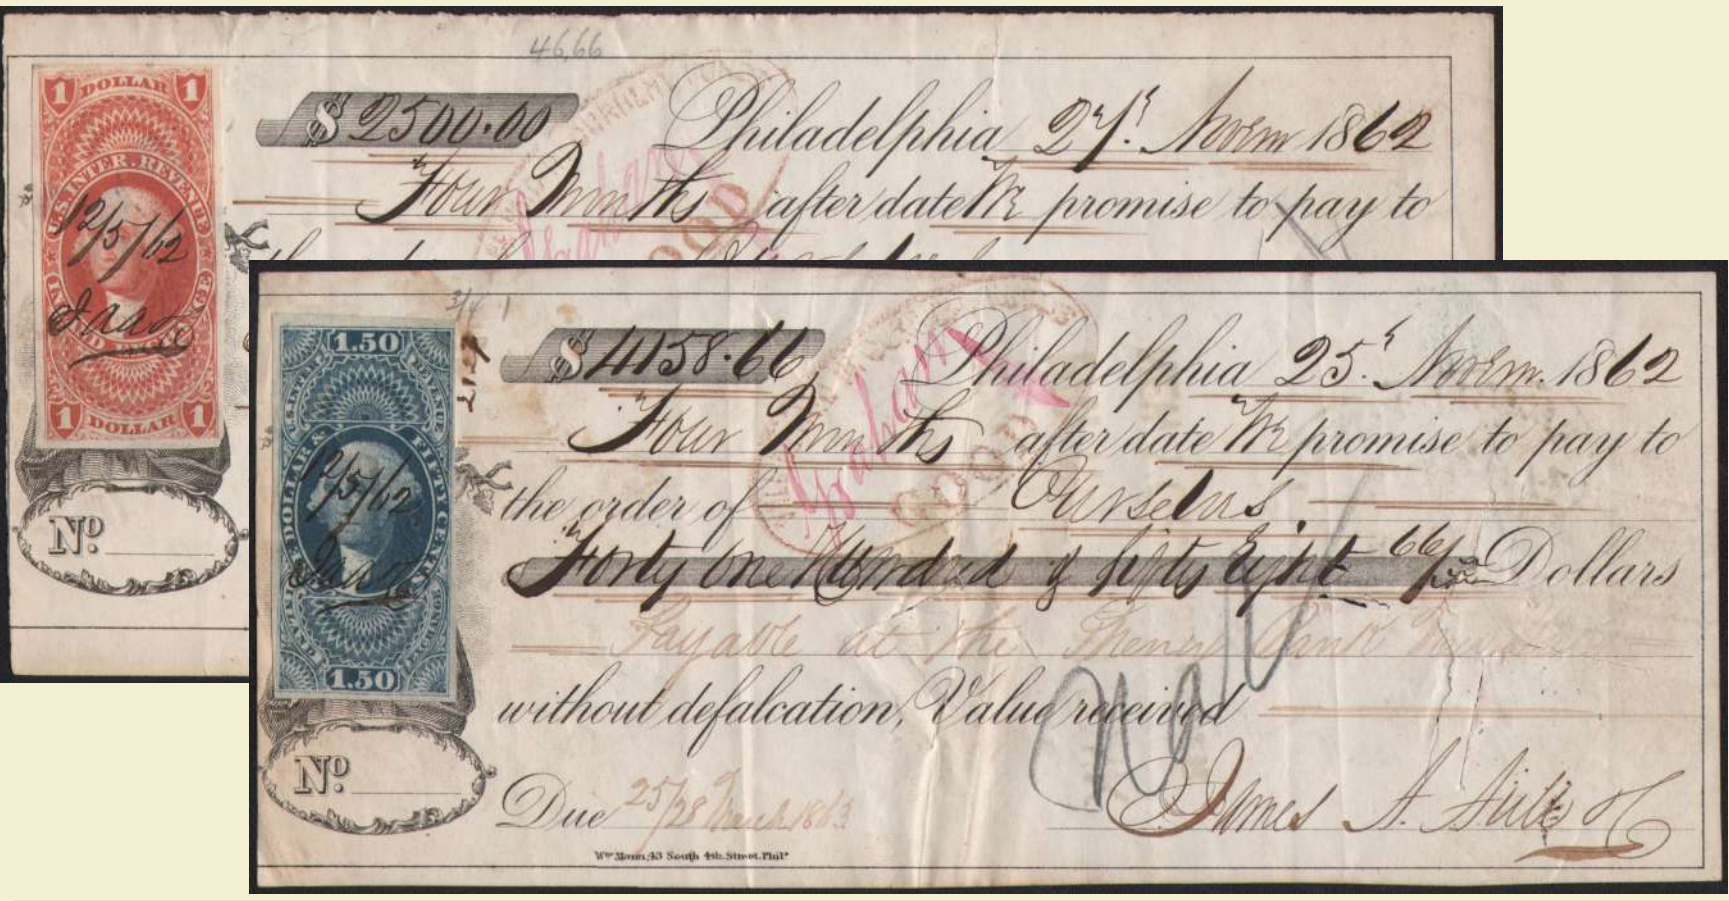 46,66
1 DOLLAR 1
U.S. INTER. REVENUE
12/5/62
1 DOLLAR 1
$ 2500.00 Philadelphia 27. Novem 1862
Four Months after date We promise to pay to
No.
3/4 1
1.50
12/5/62
1.50
$ 4158.66 Philadelphia 25. Novem. 1862
Graham
GOOD
Four Months after date We promise to pay to
the order of Ourselves
Forty one Hundred & fifty Eight 66/ Dollars
Payable at the Bank
without defalcation, Value received
No.
Due 25/28 March 1863
James A.
Wm Mann, 43 South 4th. Street. Phila